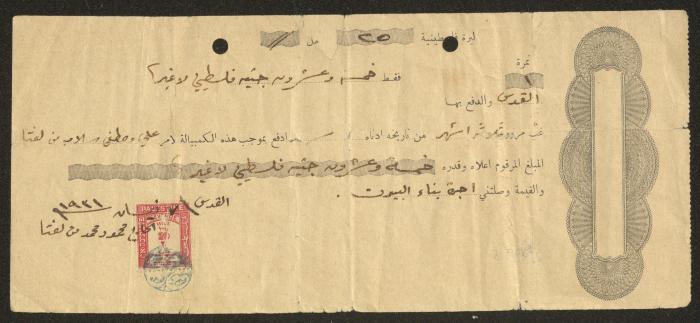 ليرة فلسطينية ٢٥ مل //
نمرة
١
فقط خمسة وعشرون جنيه فلسطيني لا غير
القدس والدفع بها
غب مرور ثلاثة اشهر من تاريخه ادناه ادفع بموجب هذه الكمبيالة لامر علي ومصطفى من لفتا
المبلغ المرقوم اعلاه وقدره خمسة وعشرون جنيه فلسطيني لا غير
والقيمة وصلتني اجرة بناء البيوت .
القدس نيسان ١٩٣١
الحاج محمود محمد من لفتا
PALESTINE